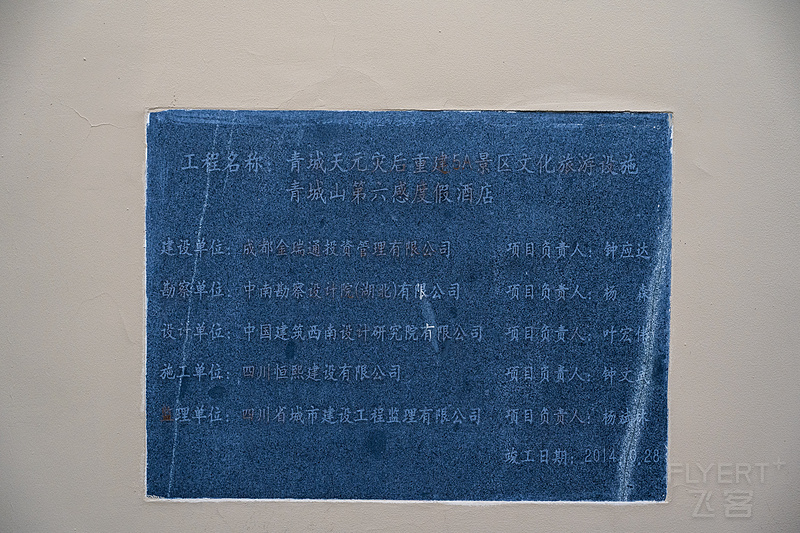 工程名称：青城天元灾后重建5A景区文化旅游设施
青城山第六感度假酒店
建设单位：成都金瑞通投资管理有限公司 项目负责人：钟应达
勘察单位：中南勘察设计院(湖北)有限公司 项目负责人：杨
设计单位：中国建筑西南设计研究院有限公司 项目负责人：叶宏伟
施工单位：四川恒熙建设有限公司 项目负责人：钟文
监理单位：四川省城市建设工程监理有限公司 项目负责人：杨
竣工日期：2014.10.28
FLYERT+
飞客